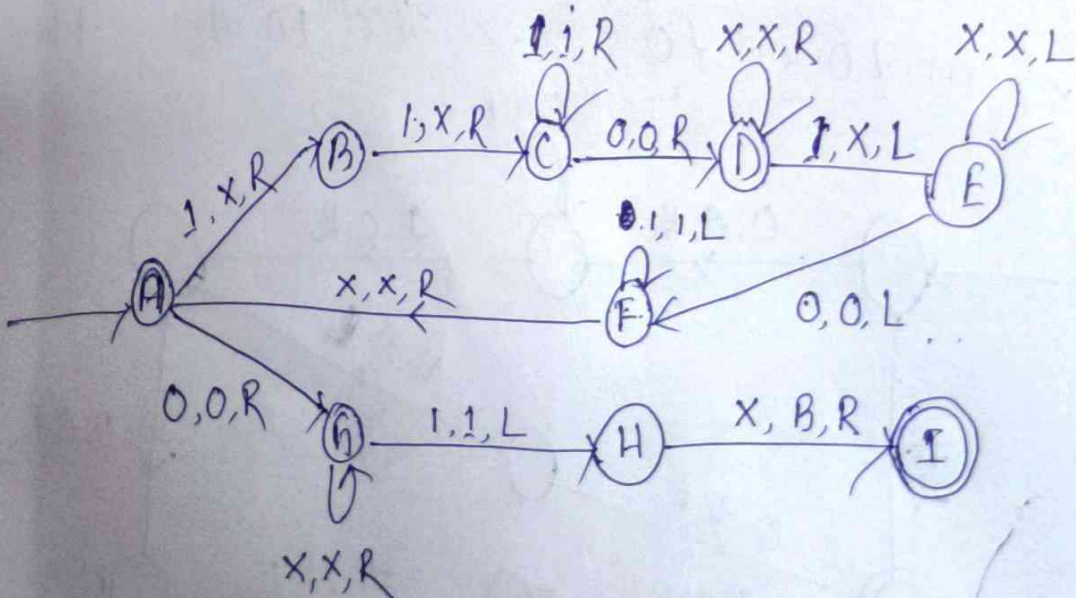 1, 1, R
X, X, R
X, X, L
B
1, X, R
C
0, 0, R
D
1, X, L
E
1, X, R
1, 1, L
A
X, X, R
F
0, 0, L
0, 0, R
G
1, 1, L
H
X, B, R
I
X, X, R